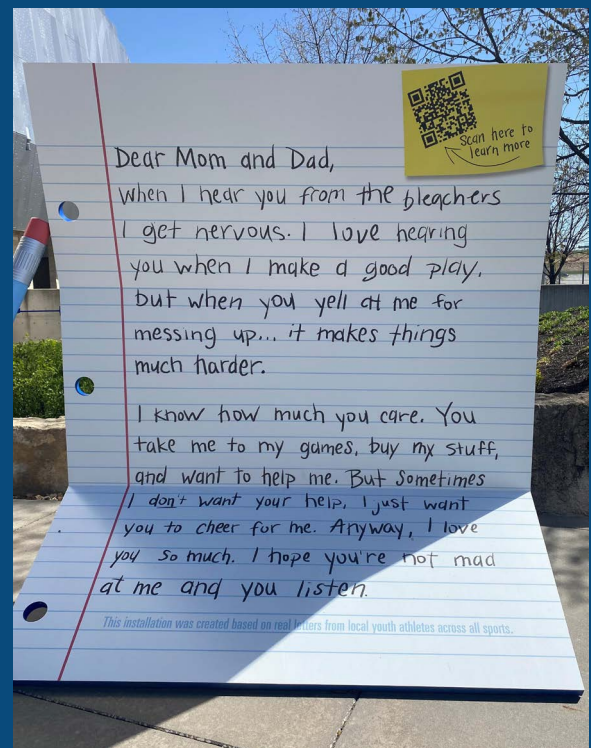 Scan here to
learn more
Dear Mom and Dad,
When I hear you from the bleachers
I get nervous. I love hearing
you when I make a good play,
but when you yell at me for
messing up... it makes things
much harder.
I know how much you care. You
take me to my games, buy my stuff,
and want to help me. But sometimes
I don't want your help, I just want
you to cheer for me. Anyway, I love
you so much. I hope you're not mad
at me and you listen.
This installation was created based on real letters from local youth athletes across all sports.